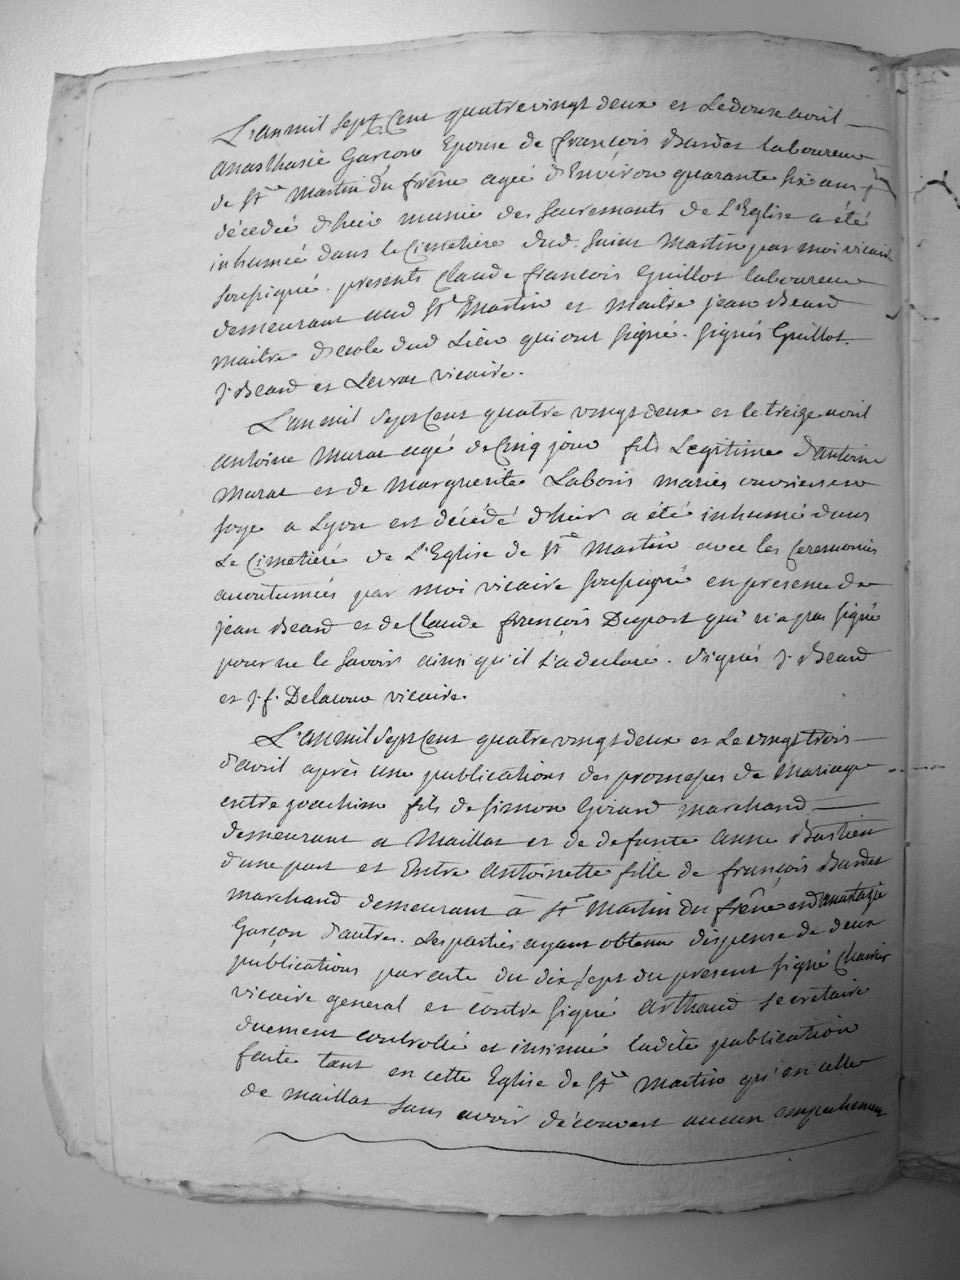 L'an mil sept Cent quatre vingt deux et Le douze avril
anasthasie Garçon Epouse de françois Bardet laboureur
de St Martin du frêne agée d'Environ quarante six ans
décedée d'hier munie des sacrements de L'Eglise a été
inhumée dans le Cimetiere dud. Saint Martin par moi vicaire
soussigné. presents Claude françois Guillot laboureur
demeurant aud St Martin et Maitre jean Beard
maitre d'ecole dud Lieu qui ont signé. Signés Guillot.
J. Beard et Levrat vicaire.
L'an mil Sept Cent quatre vingt deux et le treize avril
antoine Murat agé de Cinq jour fils Legitime d'antoine
Murat et de Marguerite Laboris mariés ouvriers en
soye a Lyon est décédé d'hier a été inhumé dans
Le Cimetiere de L'Eglise de St Martin avec les Ceremonies
acoutumées par moi vicaire soussigné en presence de
jean Beard et de Claude françois Duport qui n'a pas signé
pour ne le savoir ainsi qu'il L'a declaré. Signés J. Beard
et J. f. Delacour vicaire.
L'an mil Sept Cent quatre vingt deux et Le vingt trois
d'avril après une publications des promesses de Mariage
entre joachim fils de Simon Girard marchand
demeurant a Maillat et de defunte anne Bastien
d'une part et Entre antoinette fille de françois Bardet
marchand demeurant à St Martin du frêne et d'anastazie
Garçon d'autres. Les parties ayant obtenu dispense de deux
publications par acte du dix sept du present signé
vicaire general et contre signé arthaud secretaire
duement controllé et insinué ladite publication
faite tant en cette Eglise de St Martin qu'en celle
de maillat sans avoir découvert aucun empechement